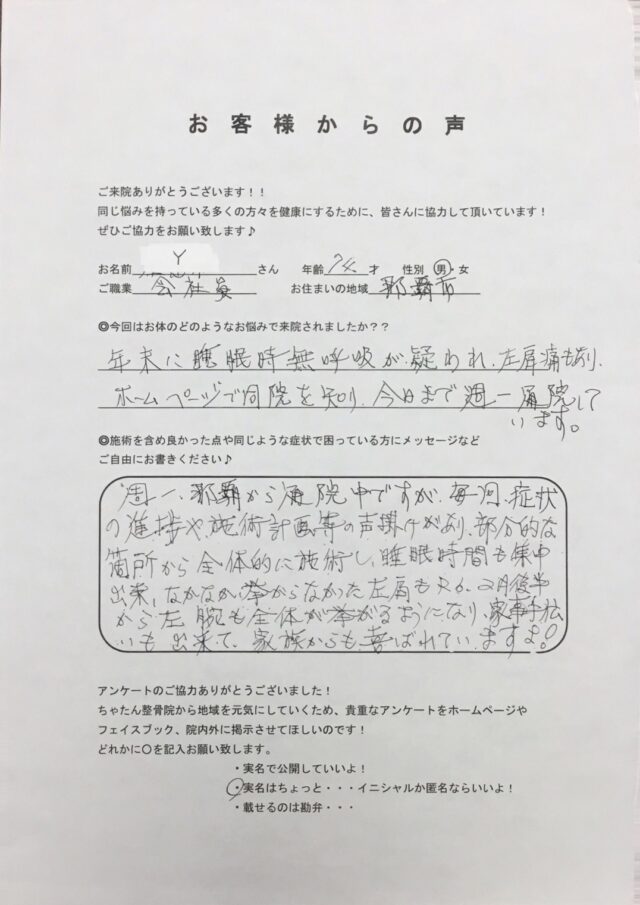 お客様からの声
ご来院ありがとうございます！！
同じ悩みを持っている多くの方々を健康にするために、皆さんに協力して頂いています！
ぜひご協力をお願い致します♪
お名前 Y さん 年齢 才 性別 男・女
ご職業 会社員 お住まいの地域 那覇市
◎今回はお体のどのようなお悩みで来院されましたか？？
年末に睡眠時無呼吸が疑われ、左肩痛もあり、
ホームページで同院を知り、今日まで週一通院して
います。
◎施術を含め良かった点や同じような症状で困っている方にメッセージなど
ご自由にお書きください♪
週一、那覇から通院中ですが、毎週、症状
の進捗や、施術計画等の声掛けがあり、部分的な
箇所から全体的に施術し、睡眠時間も集中
出来、なかなか挙がらなかった左肩もR6.2月後半
から左腕も全体が挙がるようになり、家事手伝
いも出来て、家族からも喜ばれていますよ！
アンケートのご協力ありがとうございました！
ちゃたん整骨院から地域を元気にしていくため、貴重なアンケートをホームページや
フェイスブック、院内外に掲示させてほしいのです！
どれかに〇を記入お願い致します。
・実名で公開していいよ！
・実名はちょっと・・・イニシャルか匿名ならいいよ！
・載せるのは勘弁・・・